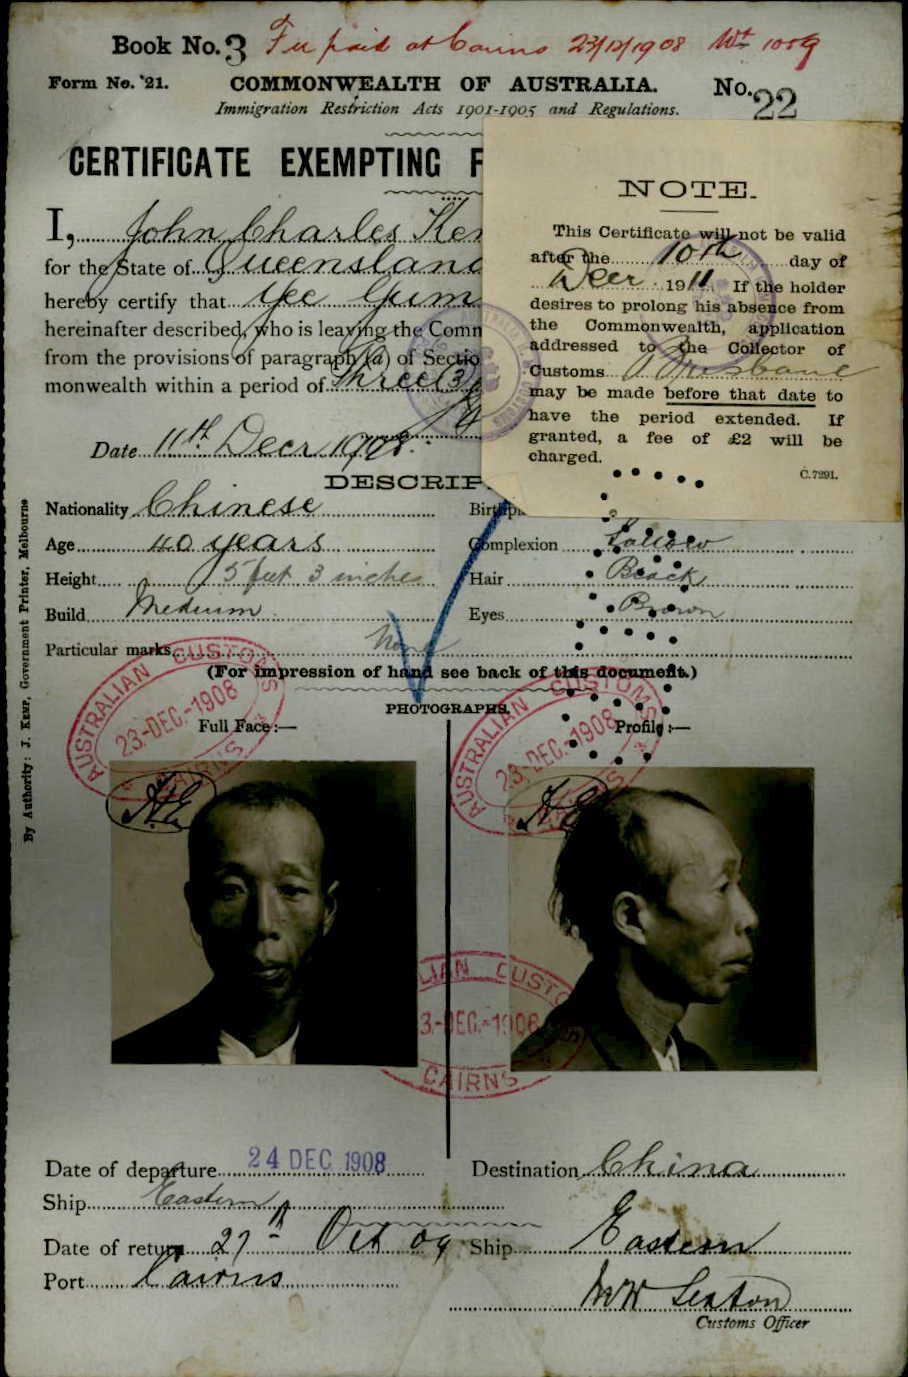 Book No. 3 Fee paid at Cairns 23/12/1908 Wt 1009
Form No. 21. COMMONWEALTH OF AUSTRALIA. No. 22
Immigration Restriction Acts 1901-1905 and Regulations.
CERTIFICATE EXEMPTING F
I, John Charles Ken
for the State of Queensland
hereby certify that Yee Gum
hereinafter described, who is leaving the Comm
from the provisions of paragraph (a) of Sectio
monwealth within a period of Three (3)
Date 11th Decr 1908.
NOTE.
This Certificate will not be valid
after the 10th day of
Decr 1911 If the holder
desires to prolong his absence from
the Commonwealth, application
addressed to the Collector of
Customs Brisbane
may be made before that date to
have the period extended. If
granted, a fee of £2 will be
charged.
C.7291.
DESCRIP
Nationality Chinese Birthpl
Age 40 years Complexion Sallow
Height 5 feet 3 inches Hair Black
Build Medium Eyes Brown
Particular marks None
(For impression of hand see back of this document.)
PHOTOGRAPHS.
Full Face:— Profile:—
AUSTRALIAN CUSTOMS
23.-DEC.-1908
CAIRNS
AUSTRALIAN CUSTOMS
23.-DEC.-1908
H.E.
H.E.
LIAN CUSTOMS
3.-DEC.-1908
CAIRNS
By Authority: J. Kemp, Government Printer, Melbourne
Date of departure 24 DEC 1908 Destination China
Ship Eastern
Date of return 27th Oct 09 Ship Eastern
Port Cairns
Customs Officer